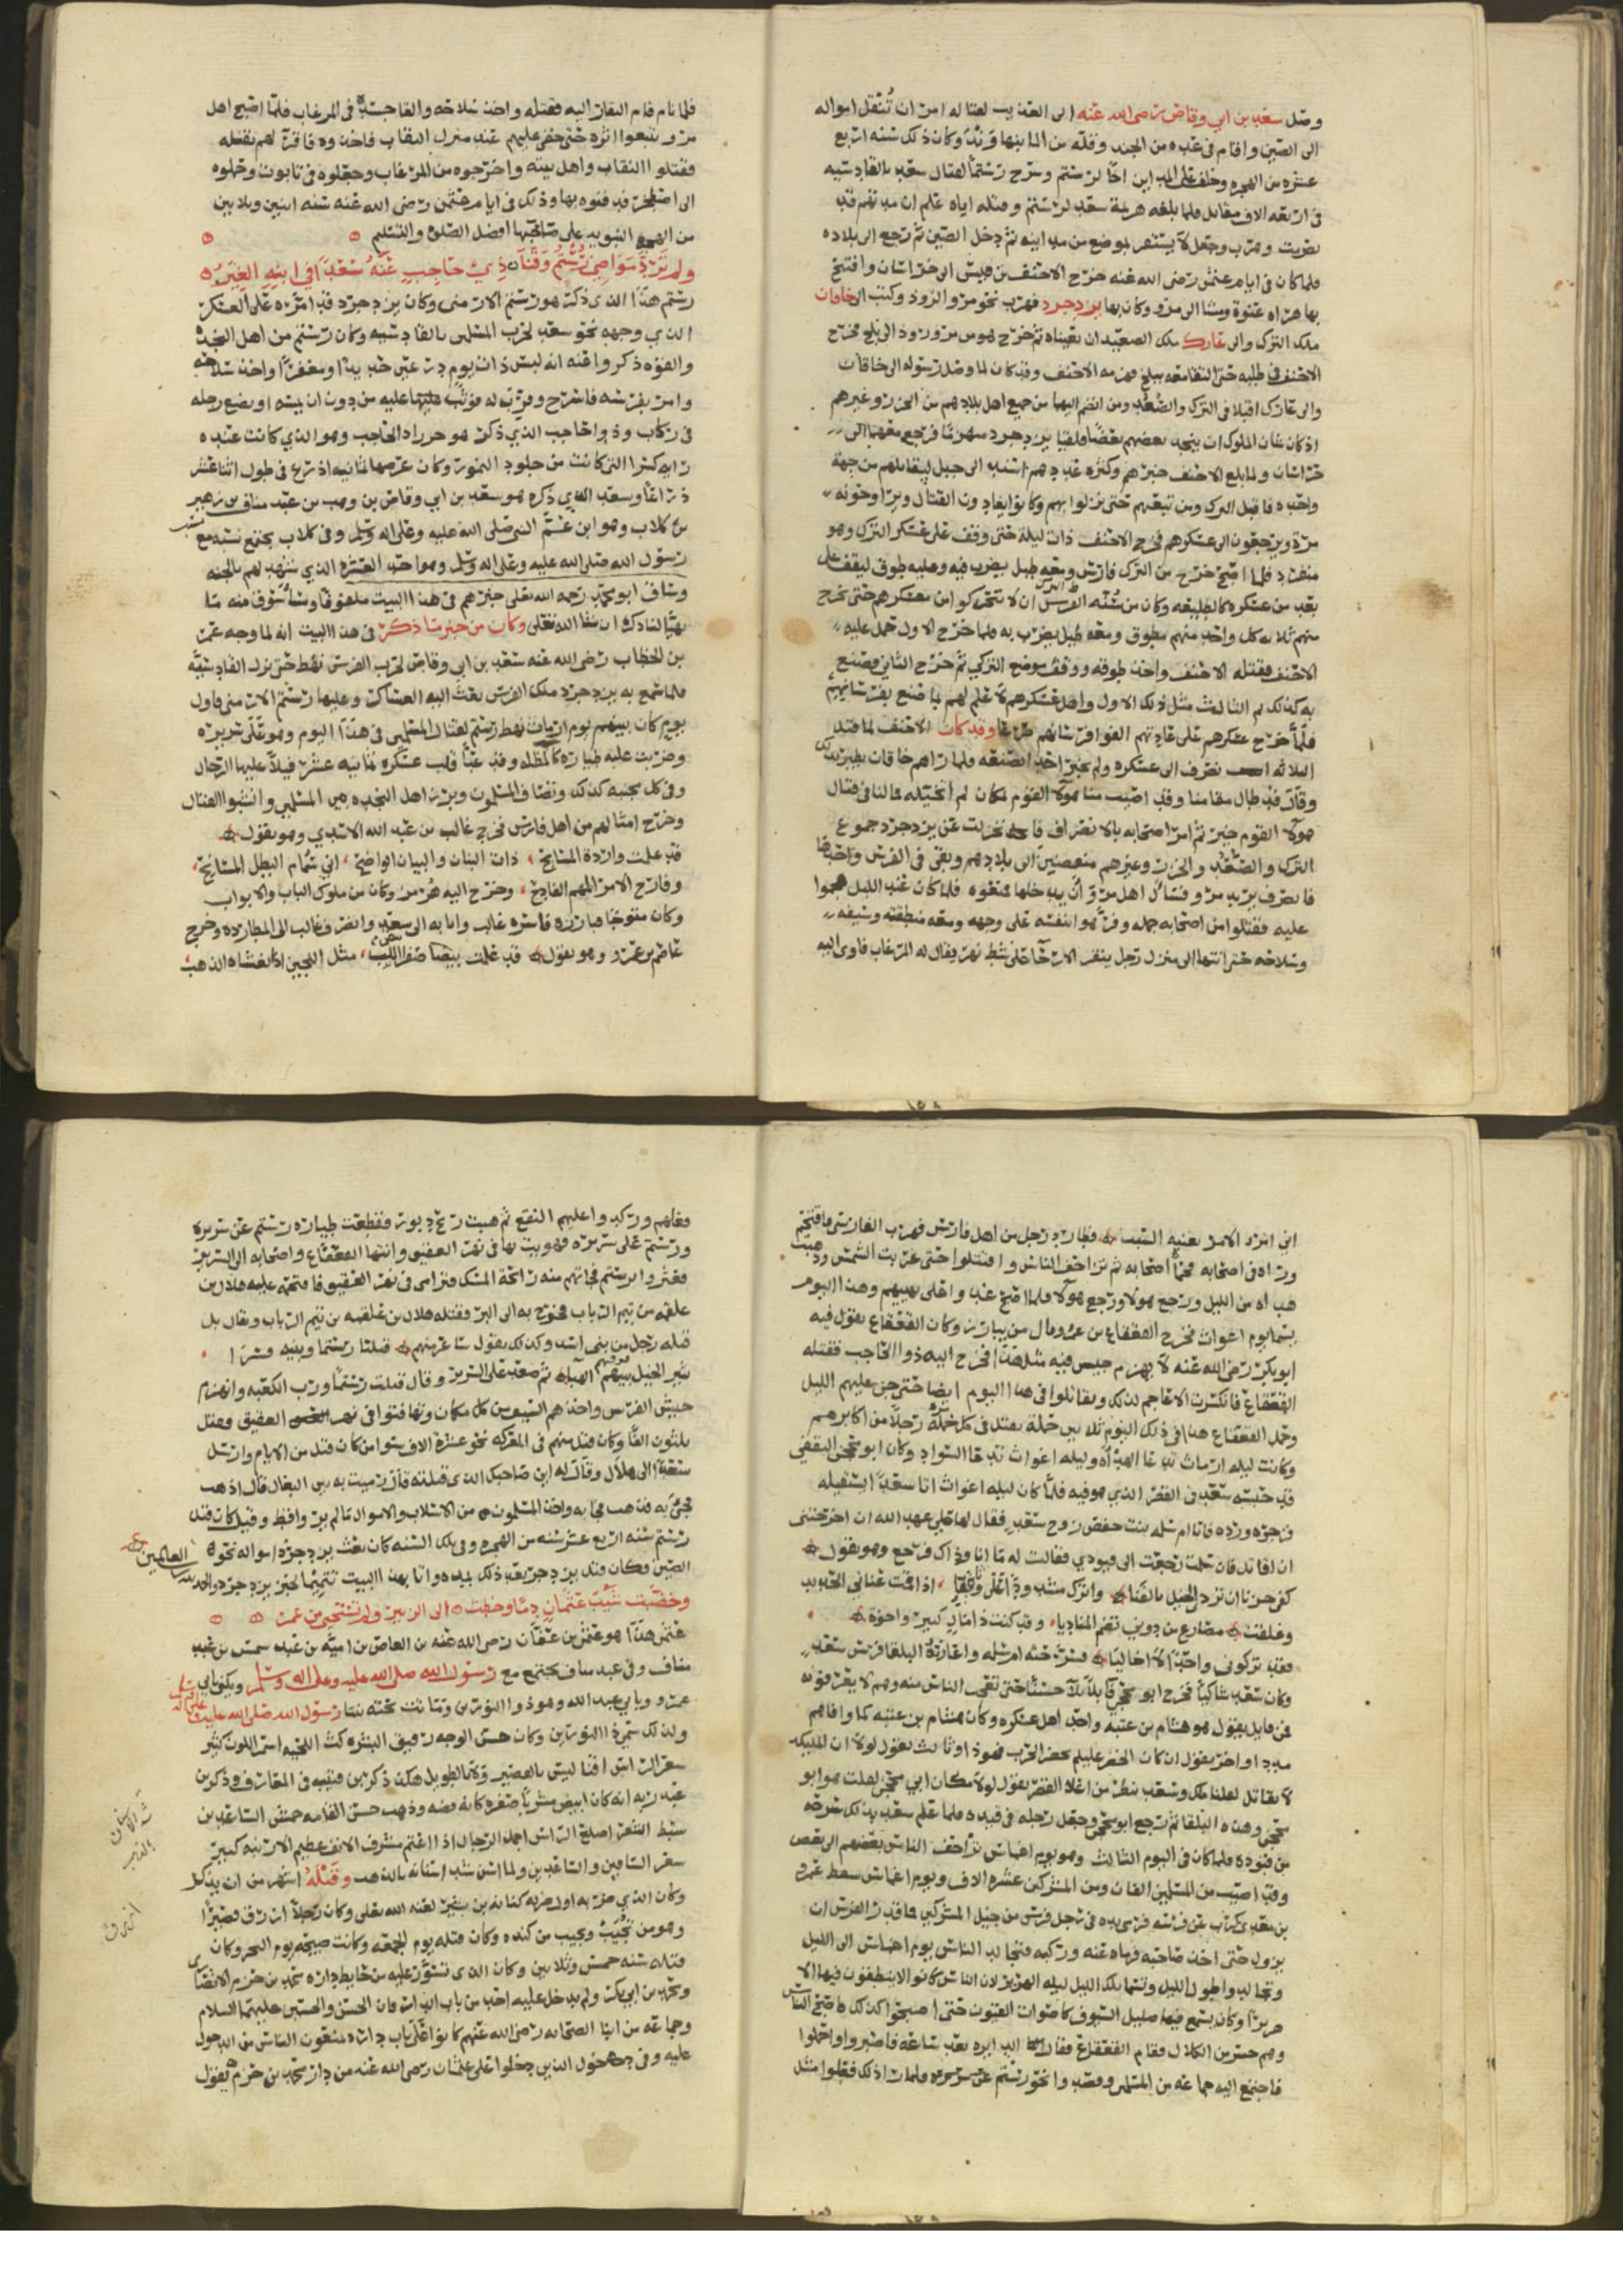 وصل سعد بن ابي وقاص رضى الله عنه الى العذيب لقتاله امر ان تُنقل امواله
الى الصين واقام فى عده من الجند وقله من المال بينها وَنَدَ وكان ذلك سنه اربع
عشره من الهجره وخلف على المداين اخًا لرستم وسرح رستماً لقتال سعد بالقادسيه
فى اربعه الاف مقاتل فلما بلغه هزيمة سعد لرستم وقتله اياه علم ان مدتهم قد
تصرمت وهرب وجعل لا يستقر بموضع من مداينه ثم دخل الصين ثم رجع الى بلاده
فلما كان فى ايام عثمن رضى الله عنه خرج الاحنف بن قيس الى خراسان وافتتح
بها هراه عنوة ومشا الى مرو وكان بها يزدجرد فهرب نحو مرو الروذ وكتب الى خاقان
ملك الترك والى غارك ملك الصغد ان يعيناه ثم خرج هو من مرو روذ الى بلخ فخرج
الاحنف فى طلبه حتى التقا معه ببلخ فهزمه الاحنف وقد كان لما وصل رسوله الى خاقان
والى غارك اقبلا فى الترك والصُغد ومن انضم اليهما من جميع اهل بلادهم من الخزر وغيرهم
اذ كان شان الملوك ان ينجد بعضهم بعضًا فلقيا يزدجرد منهزمًا فرجع معهما الى
خراسان ولما بلغ الاحنف خبرهم وكثره عددهم استند الى جبل ليقاتلهم من جهة
واحده فاقبل الترك ومن تبعهم حتى نزلوا بهم وكانوا يغادون القتال ويراوحونه
مرة ويرجعون الى عسكرهم فخرج الاحنف ذات ليلة حتى وقف على عسكر الترك وهو
منفرد فلما اصبح خرج من الترك فارس ومعه طبل يضرب فيه وعليه طوق ليقف على
بعد من عسكره كالطليعه وكان من سُنّه الترك ان لا يتحركوا من معسكرهم حتى يخرج
منهم ثلاثه كل واحد منهم مطوق ومعه طبل يضرب به فلما خرج الاول حمل عليه
الاحنف فقتله الاحنف واخذ طوقه ووقف موضع التركي ثم خرج الثانى فصنع
به كذلك ثم الثالث مثل ذلك الاول واهل عسكرهم لا علم لهم بما صنع بفرسانهم
فلما خرج عسكرهم على عادتهم الفوا فرسانهم صرعا وقد كان الاحنف لما قتل
الثلاثه انصرف الى عسكره ولم يخبر احد بصنعه فلما راهم خاقان تطير بذلك
وقال قد طال مقامنا وقد اصيب منا هولاء القوم بمكان لم نُتخيّله فما لنا فى قتال
هولاء القوم خير ثم امر اصحابه بالانصراف فانخزلت عن يزدجرد جموع
الترك والصغد والخزر وغيرهم منصرفين الى بلادهم وبقى فى الفرس واصحابها
فانصرف يريد مرو فسال اهل مرو أن يدخلها فمنعوه فلما كان عند الليل هجموا
عليه فقتلوا من اصحابه جمله وفر هو بنفسه على وجهه ومعه منطقته وسيفه
وسلاحه حتى انتها الى منزل رجل ينقر الارحا على شط نهر يقال له المرغاب فاوى اليه
فلما نام قام النقار اليه فقتله واخذ سلاحه والقا جسده فى المرغاب فلما اصبح اهل
مرو تتبعوا اثره حتى خفى عليهم عند منزل النقاب فاخذوه فاقر لهم بقتله
فقتلوا النقاب واهل بيته واخرجوه من المرغاب وجعلوه فى تابوت وحملوه
الى اصطخر فدفنوه بها وذلك فى ايام عثمن رضى الله عنه سنه اثنين وثلاثين
من الهجره النبويه على صاحبها افضل الصلوه والتسليم
ولم تَرُدَّ مَوَاضِي رُسْتُمٍ وَقَنَا ذِي حَاجِبٍ عَنْهُ سَعْدًا فِي ابْنِهِ الغِيَرُ
رستم هذا الذى ذكر هو رستم الارمنى وكان يزدجرد قد امّره على العسكر
الذي وجهه نحو سعد لحرب المسلمين بالقادسيه وكان رستم من اهل النجده
والقوه ذكروا عنه انه لبس ذات يوم درعين حديدًا ومغفرًا واخذ سلاحه
وامر بفرسه فاسرج وقرب له فوثب عليه من دون ان يمسه او يضع رجله
فى ركاب وذو الحاجب الذي ذكر هو خرزاد الحاجب وهو الذي كانت عنده
رايه كسرا التى كانت من جلود النمور وكان عرضها ثمانيه اذرع فى طول اثنا عشر
ذراعًا وسعد الذي ذكره هو سعد بن ابي وقاص بن وهب بن عبد مناف بن زهير
بن كلاب وهو ابن عمّ النبى صلى الله عليه وعلى اله وسلم وفى كلاب يجتمع نسبه مع نسب
رسول الله صلى الله عليه وعلى اله وسلم وهو احد العشره الذي شهد لهم بالجنه
وساق ابو محمد رحمه الله تعلى خبرهم فى هذا البيت ملفوفًا وسنسوق منه ما
تهيّا لنا ذكره ان شا الله تعلى وكان من خبر ما ذكر فى هذا البيت انه لما وجه عمر
بن الخطاب رضى الله عنه سعد بن ابى وقاص لحرب الفرس نهض حتى نزل القادسيّه
فلما سمع به يزدجرد ملك الفرس بعث اليه العساكر وعليها رستم الارمنى فاول
يوم كان بينهم يوم ارماث نهض رستم لقتال المسلمين فى هذا اليوم وهو على سريره
وضربت عليه طياره كالمظله وقد عبّا قلب عسكره ثمانيه عشر فيلاً عليها الرجال
وفى كل مجنبه كذلك وتصاف المسلمون وبرز اهل النجده من المسلمين وانشبوا القتال
وخرج امثالهم من اهل فارس فخرج غالب بن عبد الله الاسدي وهو يقول
قد علمت واردة المسايح ذات البنان والبيان الواضح اني سمام البطل المشايح
وفارج الامر المهم الفادح وخرج اليه هرمز وكان من ملوك الباب والابواب
وكان متوجًا فبارزه فاسره غالب واتا به الى سعد وانصرف غالب الى المطارده وخرج
عاصم بن عمرو وهو يقول قد علمت بيضا صفرا اللبب مثل اللجين اذا تغشاه الذهب
انى امرو الامر يعنيه السبب فطارد رجل من اهل فارس فهرب الفارسى فاقتحم
وراه فى اصحابه فحما اصحابه ثم تزاحف الناس واقتتلوا حتى غربت الشمس وذهبت
هداه من الليل ورجع هولا ورجع هولا فلما اصبح غدوا على تعبيهم وهذا اليوم
يسما يوم اغواث فخرج القعقاع بن عمرو وقال من يبارز وكان القعقاع يقول فيه
ابو بكر رضى الله عنه لا يهزم جيش فيه مثل هذا فخرج اليه ذو الحاجب فقتله
القعقاع فانكسرت الاعاجم لذلك وتقاتلوا فى هذا اليوم ايضا حتى جن عليهم الليل
وحمل القعقاع هذا فى ذلك اليوم ثلاثين حملة يقتل فى كل حملة رجلاً من اكابرهم
وكانت ليله ارماث تدعا الهدأه وليله اغواث تدعا السواد وكان ابو محجن الثقفي
قد حبسه سعد فى القصر الذي هو فيه فلما كان ليله اغواث اتا سعدًا ليستقيله
فزجره ورده فاتا ام سلمه بنت حفص زوج سعد فقال لها علي عهد الله ان اخرجتنى
ان اقاتل فان سلمت رجعت الى قيودي فقالت له ما انا وذاك فرجع وهو يقول
كفى حزنا ان تردي الخيل بالقنا واترك مشدودًا عَلَيَّ وثاقيا اذا قمت عنانى الحديد
وغلقت مصارع من دوني تصم المناديا وقد كنت ذا مال كبير واخوة
فقد تركونى واحدًا لا اخا ليا فسرحته ام سلمه واعارتهُ البلقا فرس سعد
وكان سعد شاكيًا فخرج ابو محجن قاتلا بلاً حسنًا حتى تعجب الناس منه وهم لا يعرفونه
فمن قايل يقول هو هشام بن عتبه واحد اهل عسكره وكان هشام بن عتبه كما وافاهم
مددا واخر يقول ان كان الخضر عليلم يحضر الحرب فهو ذا وثالث يقول لولا ان المليكه
لا تقاتل لقلنا ملك وسعد ينظر من اعلا القصر يقول لولا مكان ابي محجن لقلت هو ابو
محجن وهذه البلقا ثم رجع ابو محجن وجعل رجله فى قيده فلما علم سعد بذلك سرحه
من قيوده فلما كان فى اليوم الثالث وهو يوم اعماس تزاحف الناس بعضهم الى بعض
وقد اصيب من المسلمين الفان ومن المشركين عشره الاف ويوم اغماس سعط عمرو
بن معدى كرب عن فرسه فرمى بيده فى رجل فرس من خيل المشركين فما قدر الفرس ان
يزول حتى اخذ صاحبه فرماه عنه وركبه فتجالد الناس يوم اعماس الى الليل
وتجالدوا طول الليل وتسما تلك الليل ليله الهرير لان الناس كانوا لا ينطقون فيها الا
هريرًا وكان يسمع فيها صليل السيوف كاصوات القيون حتى اصبحوا كذلك فاصبح الناس
وهم حسرى من الكلال فقام القعقاع فقال الدايره بعد ساعه فاصبروا واحملوا
فاجتمع اليه جماعه من المسلمين وقصد وانحو رستم عن سريره فلما رات ذلك فعلوا مثل
وفاهم وركدوا عليهم النقع ثم هبت ريح دبور فقطعت طياره رستم عن سريره
ورستم على سريره فهويت بها فى نهر العقيق وانتها القعقاع واصحابه الى السرير
فعثروا برستم فجاتهم منه رائحة المسك فترامى فى نهر العقيق فاقتحم عليه هلال بن
علقمه من تيم الرباب فخرج به الى البر وقتله هلال بن علقمه بن تيم الرباب ويقال بل
قتله رجل من بنى اسد وكذلك يقول شاعرهم قتلنا رستما وبنيه قسرا
تثير الخيل بينهم الهيالا ثم صعد على السرير وقال قتلت رستمًا ورب الكعبه وانهزم
جيش الفرس واخذهم السيف من كل مكان وتهافتوا فى نهر العقيق فقتل
ثلثون الفًا وكان قتل منهم فى المعركه نحو عشرة الاف سوا من كان قتل من الايام وارسل
سعدًا الى هلال وقال له اين صاحبك الذى قتلته قال رميت به بين البغال قال اذهب
فجئ به فذهب فجا به واخذ المسلمون من الاسلاب والاموال ما لم ير وافط وقيل كان قتل
رستم سنه اربع عشر سنه من الهجره وفى تلك السنه كان بعث يزدجرد امواله نحو
الصين وكان قتل يزدجرد بعد ذلك بمده واتا بهذا البيت تتميمًا لخبر يزدجرد والحمد لله رب العالمين
وخضبت شيب عثمان دمًا وخطت الى الزبير ولم تستحيي من عمر
عثمن هذا هو عثمن بن عفان رضى الله عنه بن العاص بن اميّه بن عبد شمس بن عبد
مناف وفى عبد مناف يجتمع مع رسول الله صلى الله عليه وعلى اله وسلم ويكنى بابى
عمرو وبابي عبد الله وهو ذو النورين وكانت تحته بنتا رسول الله صلى الله عليه وعلى اله وسلم
ولذلك سمي ذا النورين وكان حسن الوجه رقيق البشره كث اللحيه اسمر اللون كثير
شعر الراس اقنا ليس بالقصير ولا بالطويل هكذا ذكر بن قتيبه فى المعارف وذكر بن
عبد ربه انه كان ابيض مشربًا صفره كانه فضه وذهب حسن القامه حمش الساعدين
سبط الشعر اصلع الراس اجمل الرجال اذا اعتم مشرف الانف عظيم الارنبه كبير
شعر الساقين والساعدين ولما اسن شد اسنانه بالذهب وقَتْلَهُ اشهر من ان يذكر
وكان الذي ضربه اول ضربه كنانه بن بشير لعنه الله تعلى وكان رجلاً ازرق قصيرًا
وهو من تُجُيب وتجيب من كنده وكان قتله يوم الجمعه وكانت صبيحه يوم النحر وكان
قتله سنه خمس وثلاثين وكان الذى تسوّر عليه من حايط داره محمد بن حزم الانصارى
ومحمد بن ابي بكر ولم يدخل عليه احد من باب الدار وان الحسن والحسين عليهما السلام
وجماعه من ابنا الصحابه رضى الله عنهم كانوا على باب داره يمنعون الناس من الدخول
عليه وفى دخول الذين دخلوا على عثمان رضى الله عنه من دار محمد بن حزم يقول